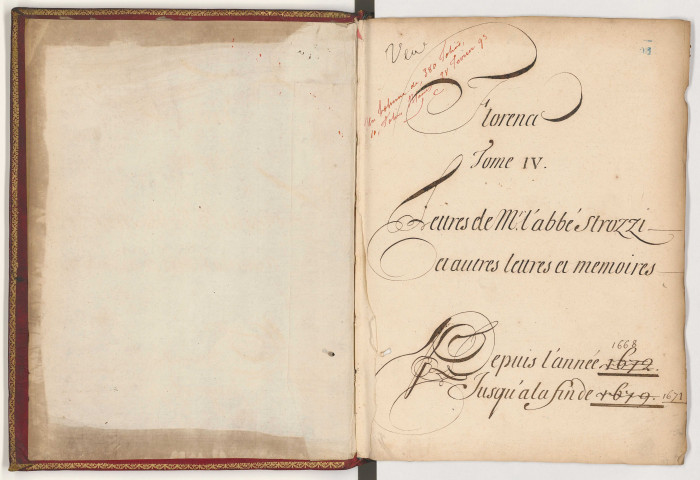 Veu
93
Un volume de 380 folios
Florence
Tome IV.
Lettres de Mr. l'abbé Strozzi
et autres lettres et memoires
1668
Depuis l'année 1672.
Jusqu'a la fin de 1679. 1671